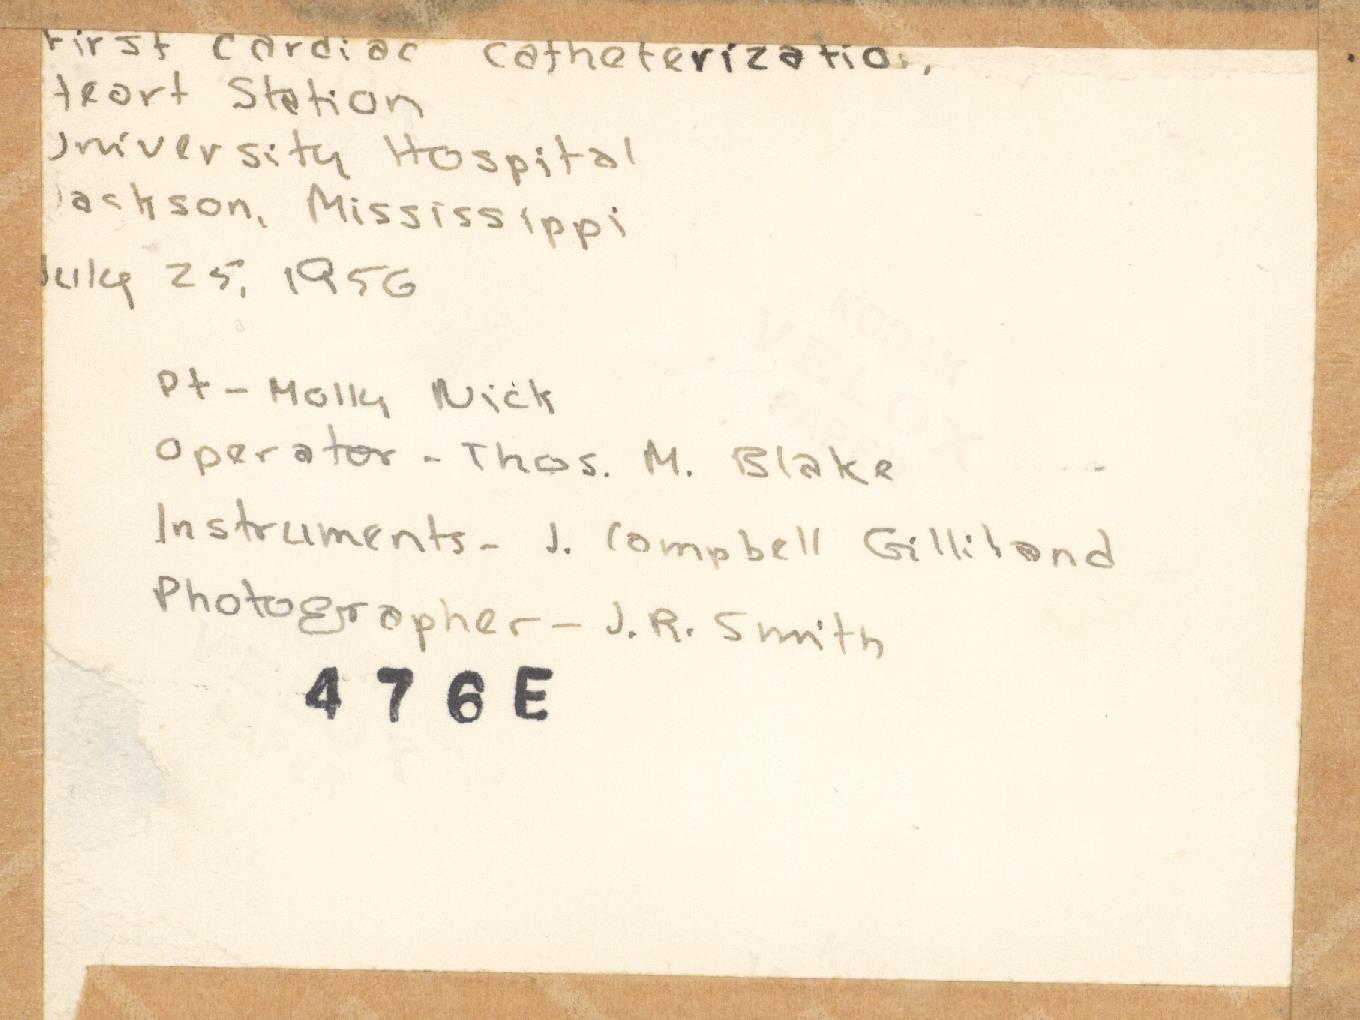 First Cardiac Catheterization,
Heart Station
University Hospital
Jackson, Mississippi
July 25, 1956
KODAK
VELOX
PAPER
Pt - Molly Nick
Operator - Thos. M. Blake
Instruments - J. Campbell Gilliland
Photographer - J.R. Smith
476E